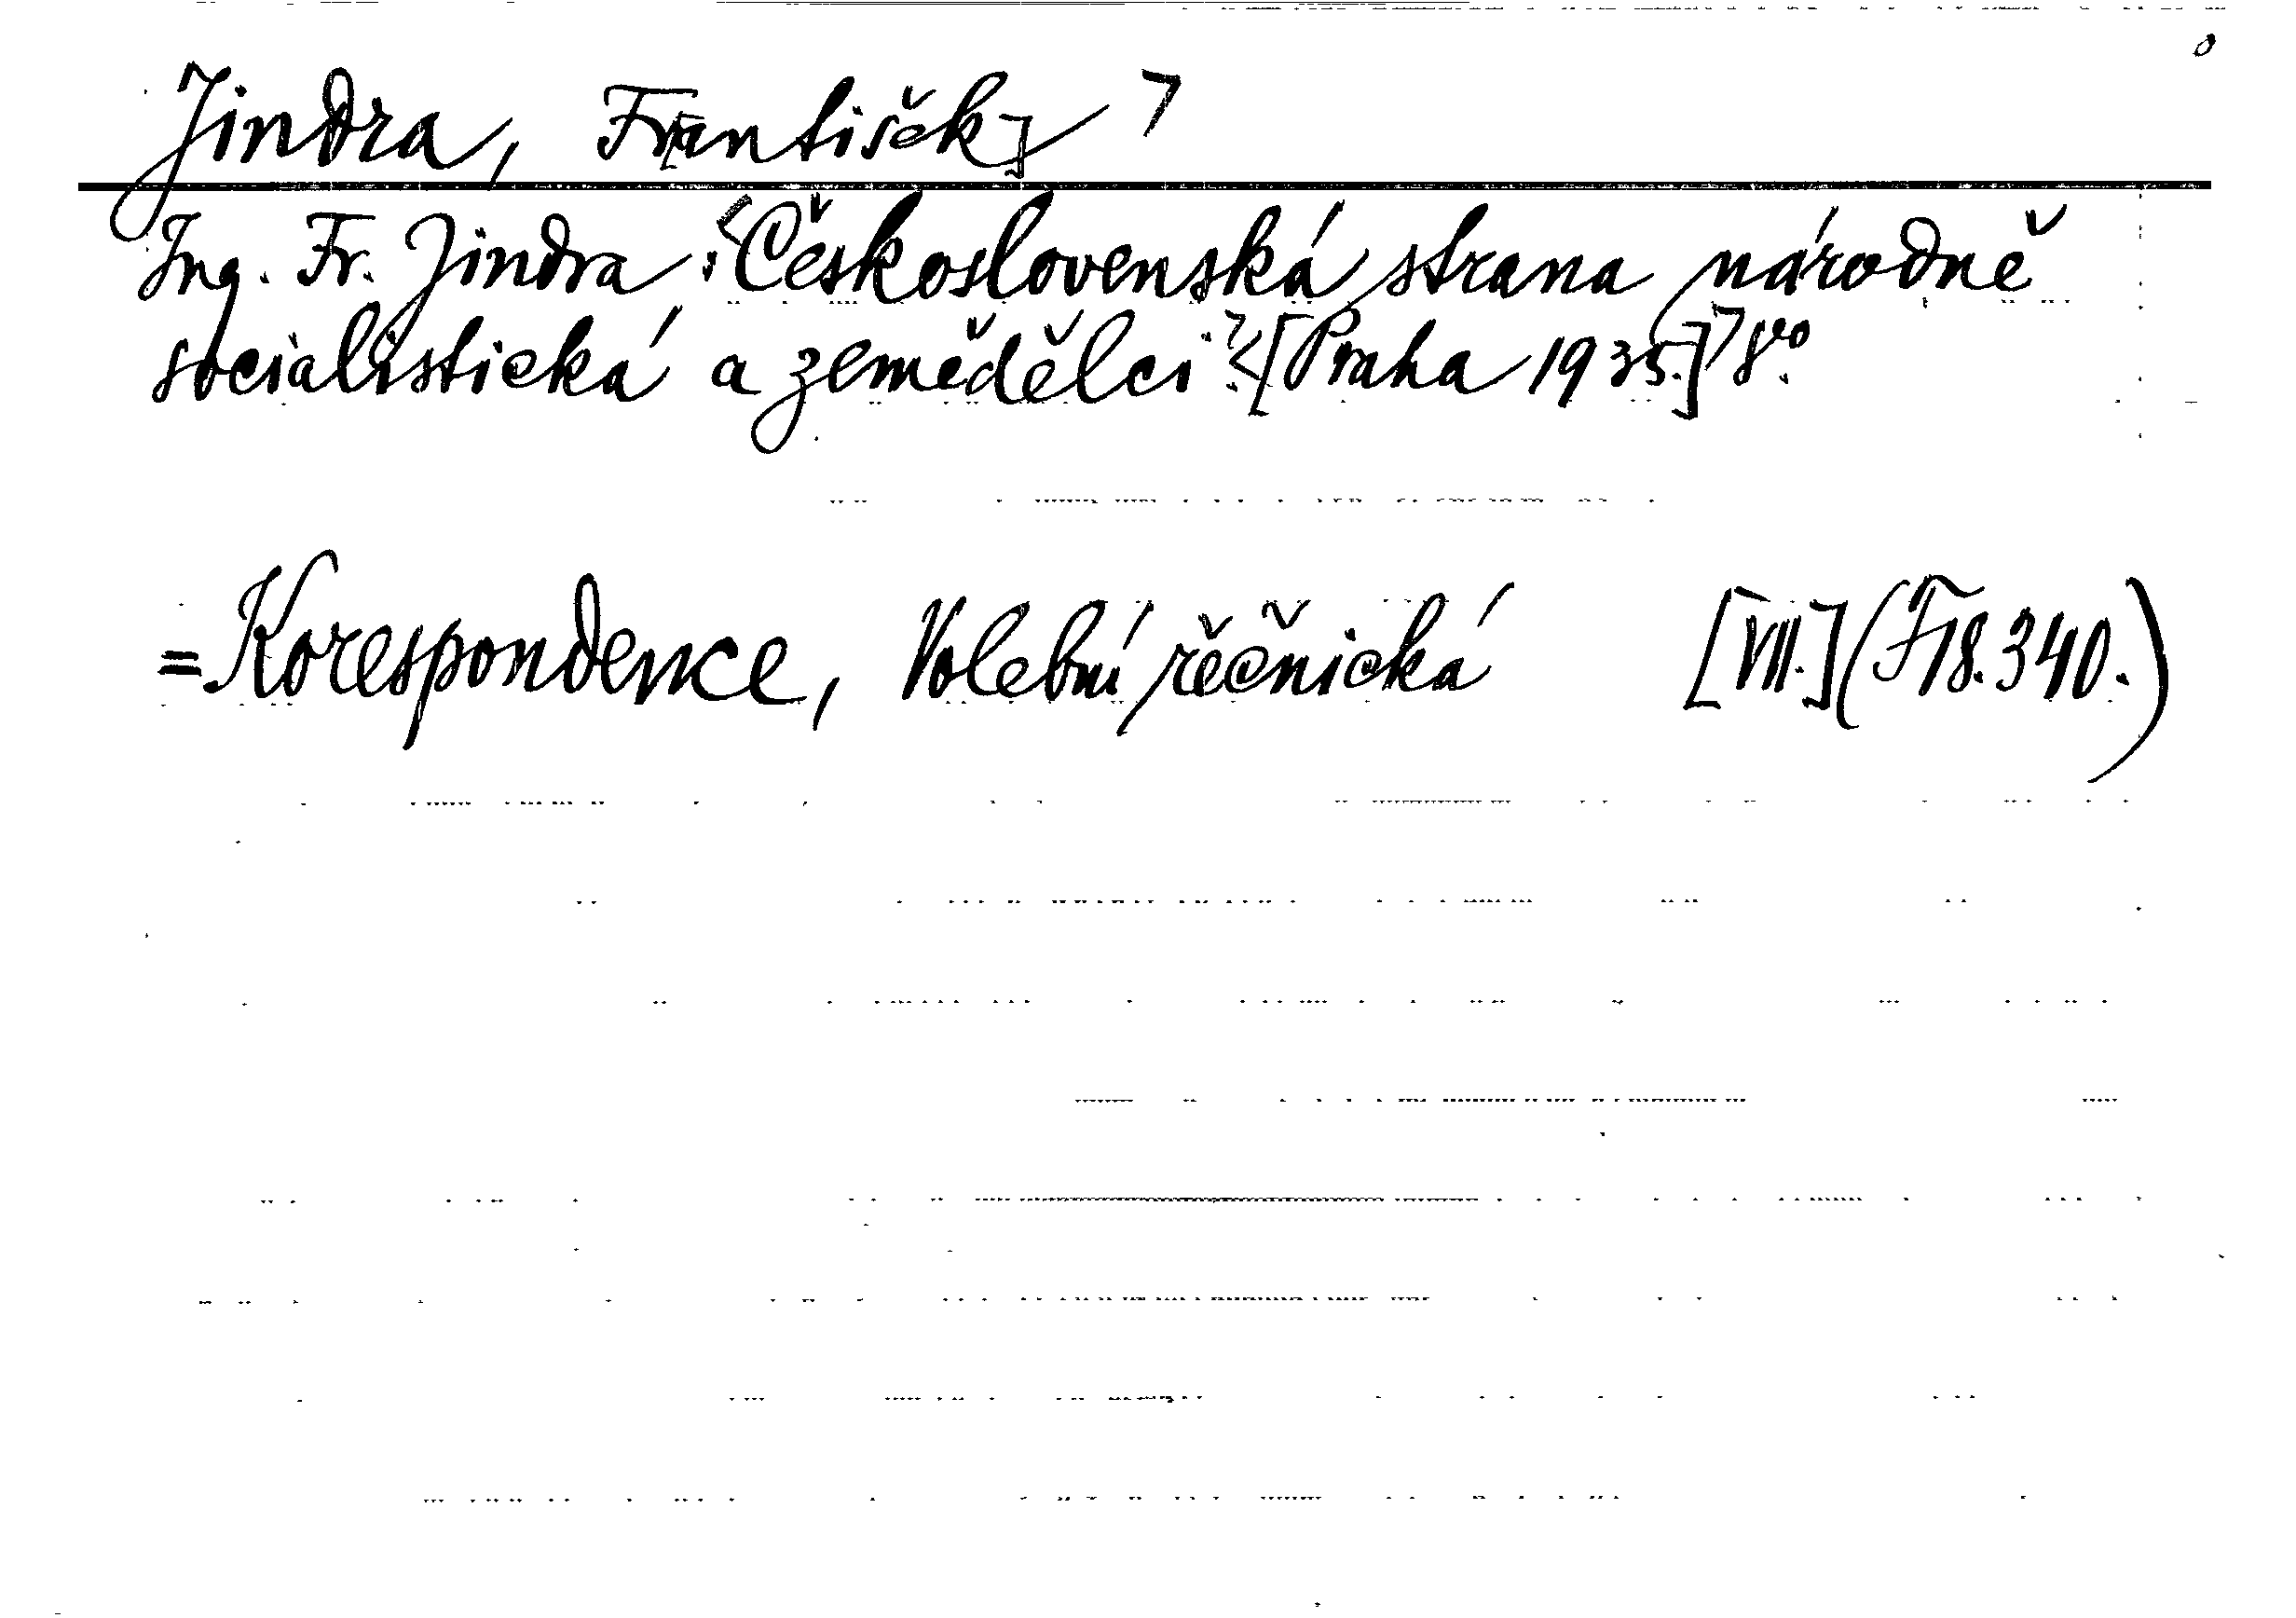 Jindra, Fr[antišek]
Ing. Fr. Jindra: Československá strana národně
socialistická a zemědělci. [Praha 1935.] 8vo.
=Korespondence, Volební řečnická [VII.] (F 18.340.)